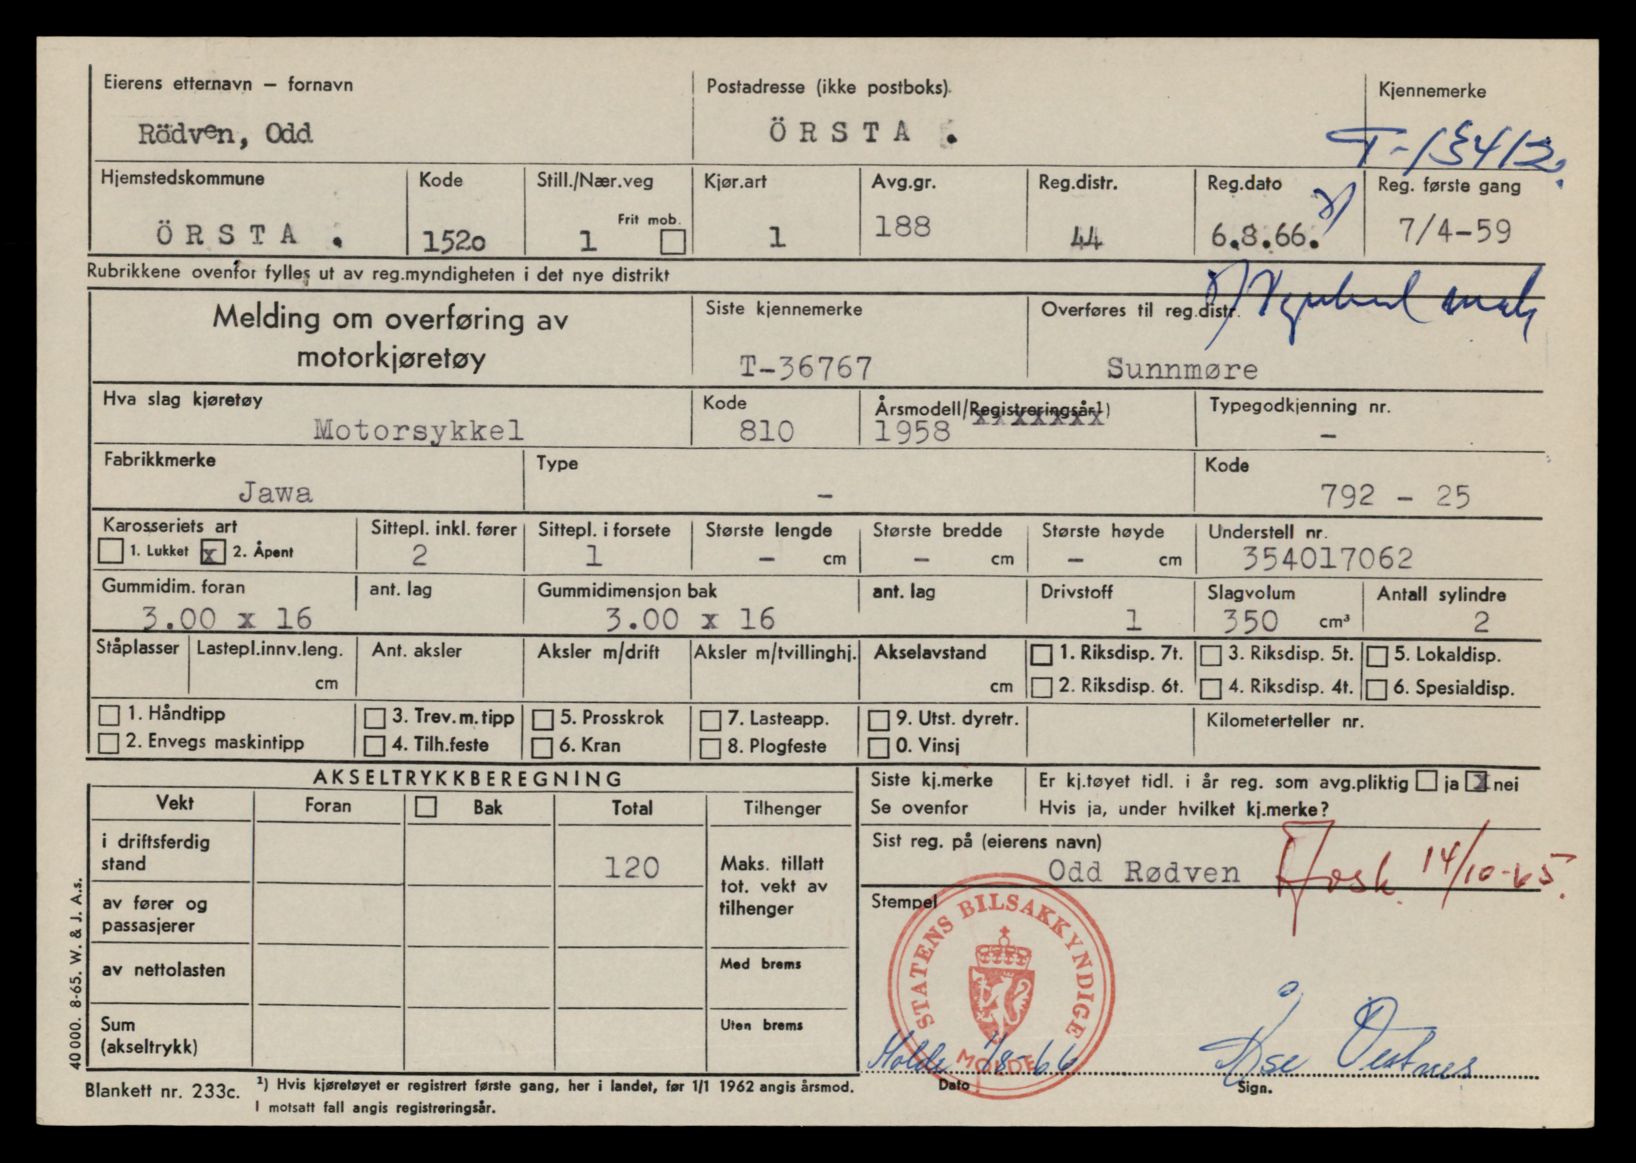 Eierens etternavn — fornavn
Postadresse (ikke postboks).
Kjennemerke
Rödven, Odd
ÖRSTA .
Hjemstedskommune
Kode
Still./Nær.veg
Kjør.art
Avg.gr.
Reg.distr.
Reg.dato
Reg. første gang
ÖRSTA .
1520
1
Frit mob.
1
188
44
6.8.66.
7/4-59
Rubrikkene ovenfor fylles ut av reg.myndigheten i det nye distrikt
Melding om overføring av
motorkjøretøy
Siste kjennemerke
Overføres til reg.distr.
T-36767
Sunnmøre
Hva slag kjøretøy
Kode
Årsmodell/Registreringsår1)
Typegodkjenning nr.
Motorsykkel
810
1958
-
Fabrikkmerke
Type
Kode
Jawa
-
792 - 25
Karosseriets art
Sittepl. inkl. fører
Sittepl. i forsete
Største lengde
Største bredde
Største høyde
Understell nr.
1. Lukket x 2. Åpent
2
1
- cm
- cm
- cm
354017062
Gummidim. foran
ant. lag
Gummidimensjon bak
ant. lag
Drivstoff
Slagvolum
Antall sylindre
3.00 x 16
3.00 x 16
1
350 cm³
2
Ståplasser
Lastepl.innv.leng.
Ant. aksler
Aksler m/drift
Aksler m/tvillinghj.
Akselavstand
1. Riksdisp. 7t.
3. Riksdisp. 5t.
5. Lokaldisp.
cm
cm
2. Riksdisp. 6t.
4. Riksdisp. 4t.
6. Spesialdisp.
1. Håndtipp
3. Trev.m.tipp
5. Prosskrok
7. Lasteapp.
9. Utst. dyretr.
Kilometerteller nr.
2. Envegs maskintipp
4. Tilh.feste
6. Kran
8. Plogfeste
0. Vinsj
AKSELTRYKKBEREGNING
Siste kj.merke
Er kj.tøyet tidl. i år reg. som avg.pliktig ja x nei
Vekt
Foran
Bak
Total
Tilhenger
Se ovenfor
Hvis ja, under hvilket kj.merke?
i driftsferdig
stand
120
Maks. tillatt
tot. vekt av
tilhenger
Sist reg. på (eierens navn)
Odd Rødven
14/10-65.
av fører og
passasjerer
Stempel
STATENS BILSAKKYNDIGE
MOLDE
av nettolasten
Med brems
Sum
(akseltrykk)
Uten brems
Molde 1/8-66
Åse Vestnes
Dato
Sign.
40 000. 8-65. W. & J. A.s.
Blankett nr. 233c.
1) Hvis kjøretøyet er registrert første gang, her i landet, før 1/1 1962 angis årsmod.
I motsatt fall angis registreringsår.